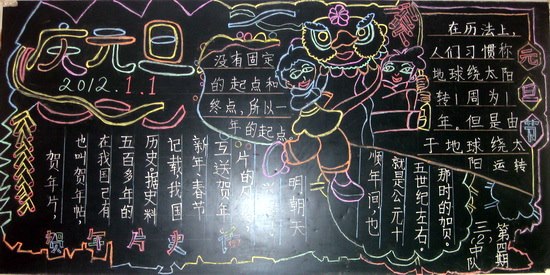 庆元旦
2012.1.1
没有固定
的起点和
终点,所以一
年的起点
在历法上,
人们习惯称
地球绕太阳
转1周为1
年。但是由
于地球绕太
阳运转
元旦节
贺年片,
也叫贺年帖,
在我国已有
五百多年的
历史。据史料
记载我国
新年·春节
互送贺年
片的
明朝
顺年间,也
就是公元十
五世纪左右。
那时的贺
贺年片史
第四期
三(2)中队